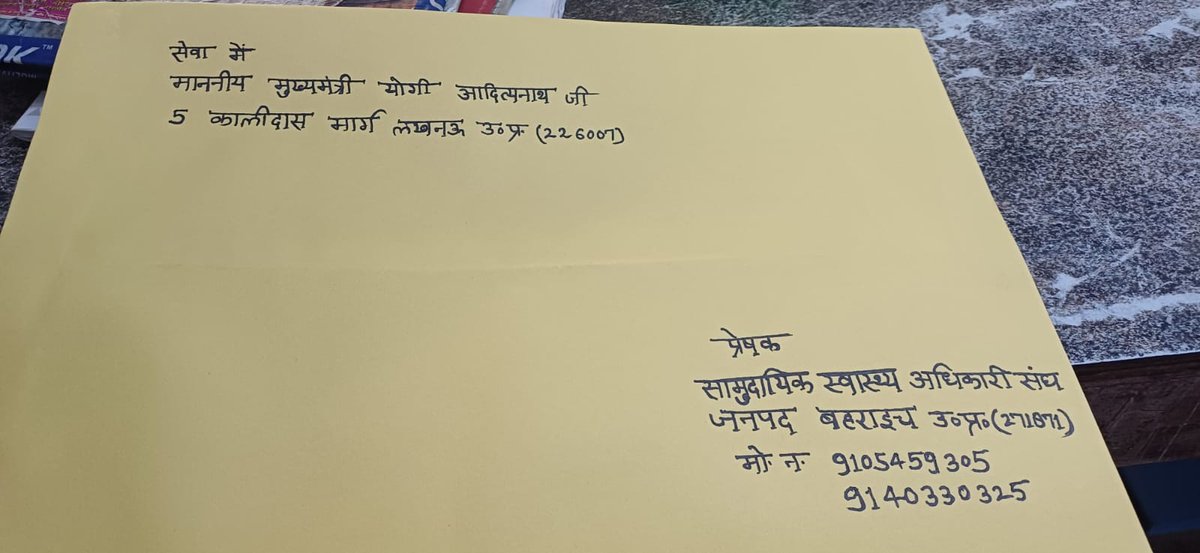 सेवा में
माननीय मुख्यमंत्री योगी आदित्यनाथ जी
5 कालीदास मार्ग लखनऊ उ०प्र० (226007)
प्रेषक
सामुदायिक स्वास्थ्य अधिकारी संघ
जनपद बहराइच उ०प्र०(271871)
मो॰ न॰ 9105459305
9140330325